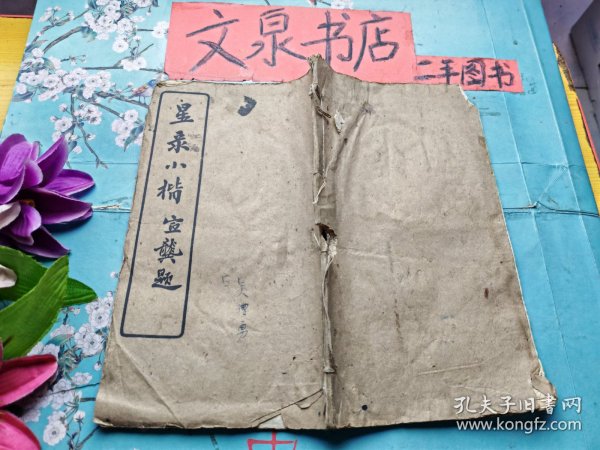 文泉书店
二手图书
星录小楷 宣龚题
孔夫子旧書网
www.kongfz.com